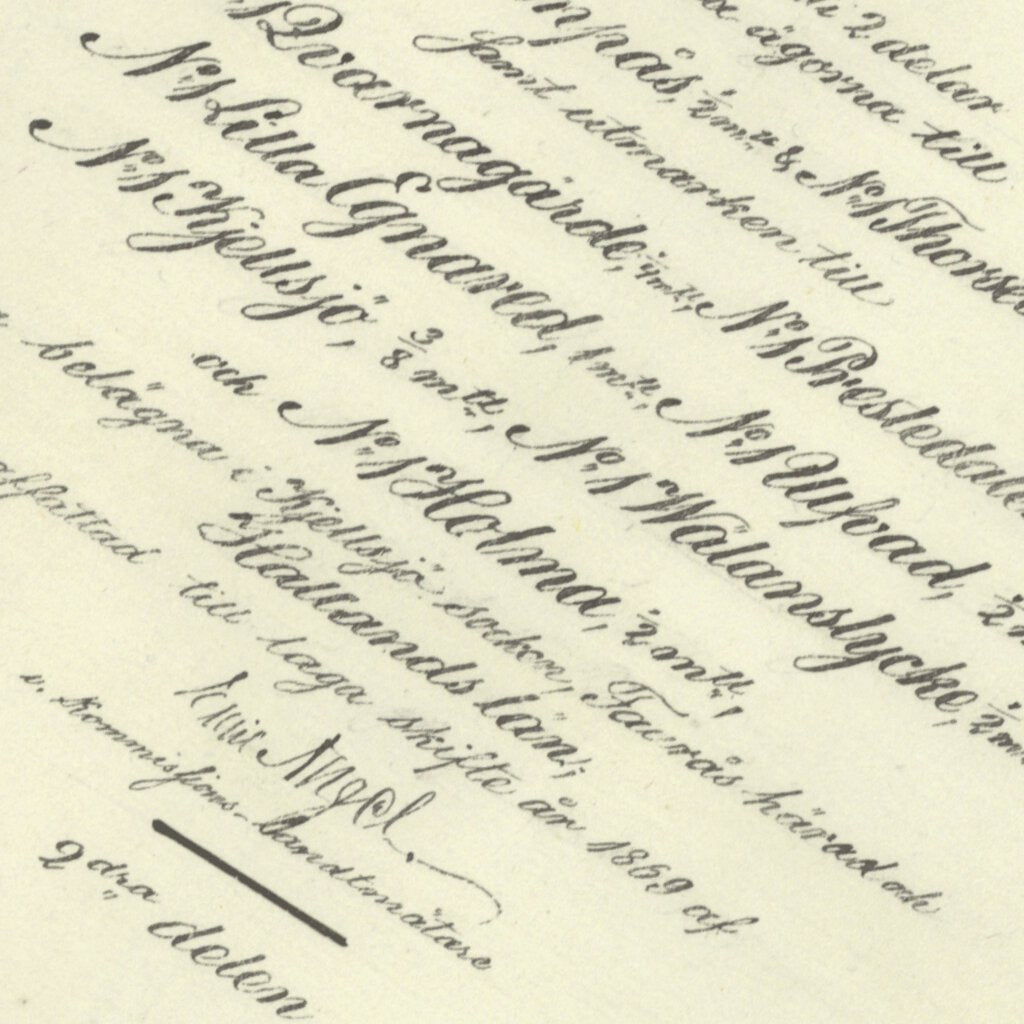 2 delar
ägorna till
mpås, ½ mtl & No 1 Thorse
Samt utmarken till
1 Qvarnagärde, mtl, No 1 Prestedale
No 1 Lilla Egnared, 1 mtl, No 1 Ulfvad, ½
No 1 Kjellsjö, 3/8 mtl, No 1 Wälanslycke, ½ m
och No 1 Holma, ½ mtl,
belägna i Kjellsjö socken, Faurås härad och
Hallands län;
affattad till laga skifte år 1869 af
Emil
v. Kommissions-Landtmätare
2dra delen